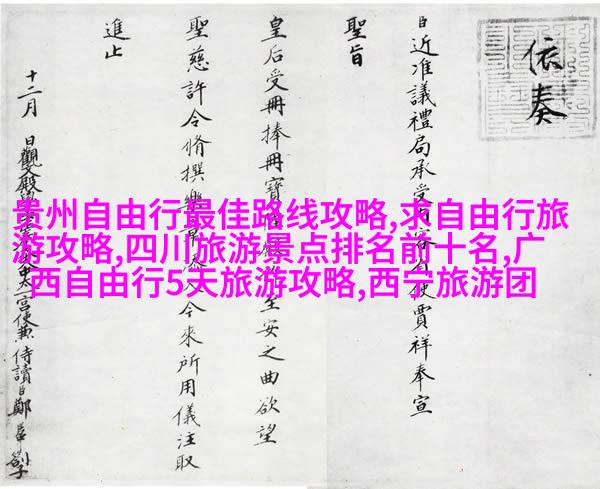 依奏
臣近准議禮局承受使賈祥奉宣
聖旨
皇后受冊捧冊寶至安之曲欲望
聖慈許令脩撰樂章今來所用儀注取
進止
十二月 日觀文殿宮使兼侍讀臣鄭
贵州自由行最佳路线攻略,求自由行旅
游攻略,四川旅游景点排名前十名,广
西自由行5天旅游攻略,西宁旅游团